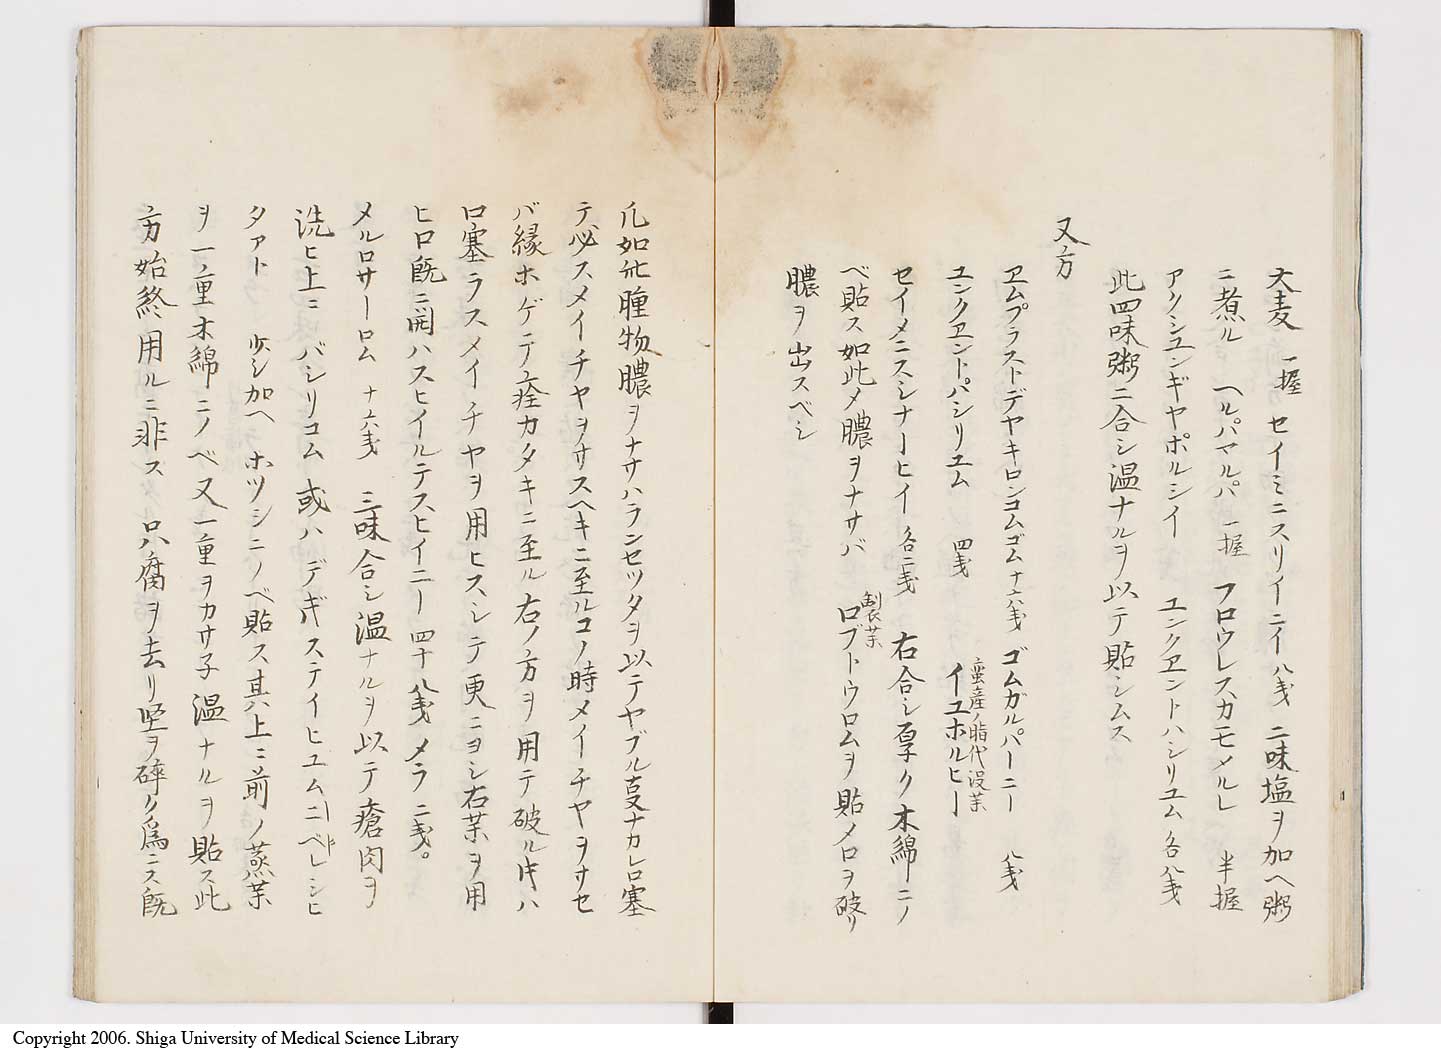 大麦 一握 セイミニスリイニイ 八戔 二味塩ヲ加ヘ粥
ニ煮ル ヘルパマルパ 一握 フロウレスカモメルレ 半握
アクシユンギヤポルシイ ユンクヱントハシリユム 各八戔
此四味粥ニ合シ温ナルヲ以テ貼シムス
又方
ヱムプラストデヤキロンゴムゴム 十六戔 ゴムガルパーニー 八戔
ユンクヱントパシリユム 四戔 イユホルヒー 蛮産ノ脂代没薬
セイメニスシナーヒイ 各二戔 右合シ厚ク木綿ニノ
ベ貼ス如此メ膿ヲナサバ 製薬 ロブトウロムヲ貼メ口ヲ破リ
膿ヲ出スベシ
凡如此腫物膿ヲナサハランセツタヲ以テヤブル叓ナカレ口塞
テ必スメイチヤヲサスヘキニ至ルコノ時メイチヤヲサセ
バ縁ホゲニテ痊カタキニ至ル右ノ方ヲ用テ破ル片ハ
口塞ラスメイチヤヲ用ヒスシテ更ニヨシ右薬ヲ用
ヒ口既ニ開ハスヒイルテスヒイニー 四十八戔 メラ 二戔。
メルロサーロム 十六戔 三味合シ温ナルヲ以テ瘡肉ヲ
洗ヒ上ニ バシリコム 或ハ デギステイヒユムニ ベレシヒ
タアト 少シ加ヘ ホツシニノベ貼ス其上ニ前ノ蒸薬
ヲ一重木綿ニノベ又一重ヲカサ子温ナルヲ貼ス此
方始終用ルニ非ス 只腐ヲ去リ堅ヲ砕ク為ニス既
Copyright 2006. Shiga University of Medical Science Library